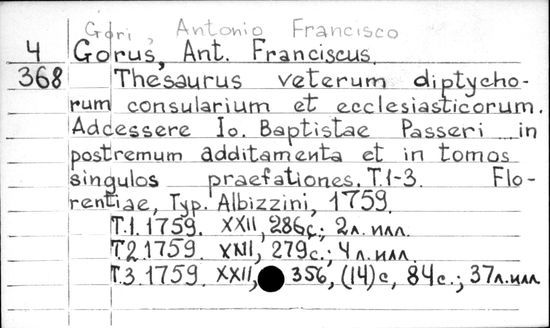 Gori, Antonio Francisco
4 Gorus, Ant. Franciscus.
368 Thesaurus veterum diptycho-
rum consularium et ecclesiasticorum.
Adcessere Io. Baptistae Passeri in
postremum additamenta et in tomos
singulos praefationes. T.1-3. Flo-
rentiae, Typ. Albizzini, 1759.
T.1. 1759. XXII, 286с.; 2л. илл.
T.2 1759. 279с.; 4л. илл.
T.3. 1759. XXII, 356, (14)с, 84с.; 37л. илл.